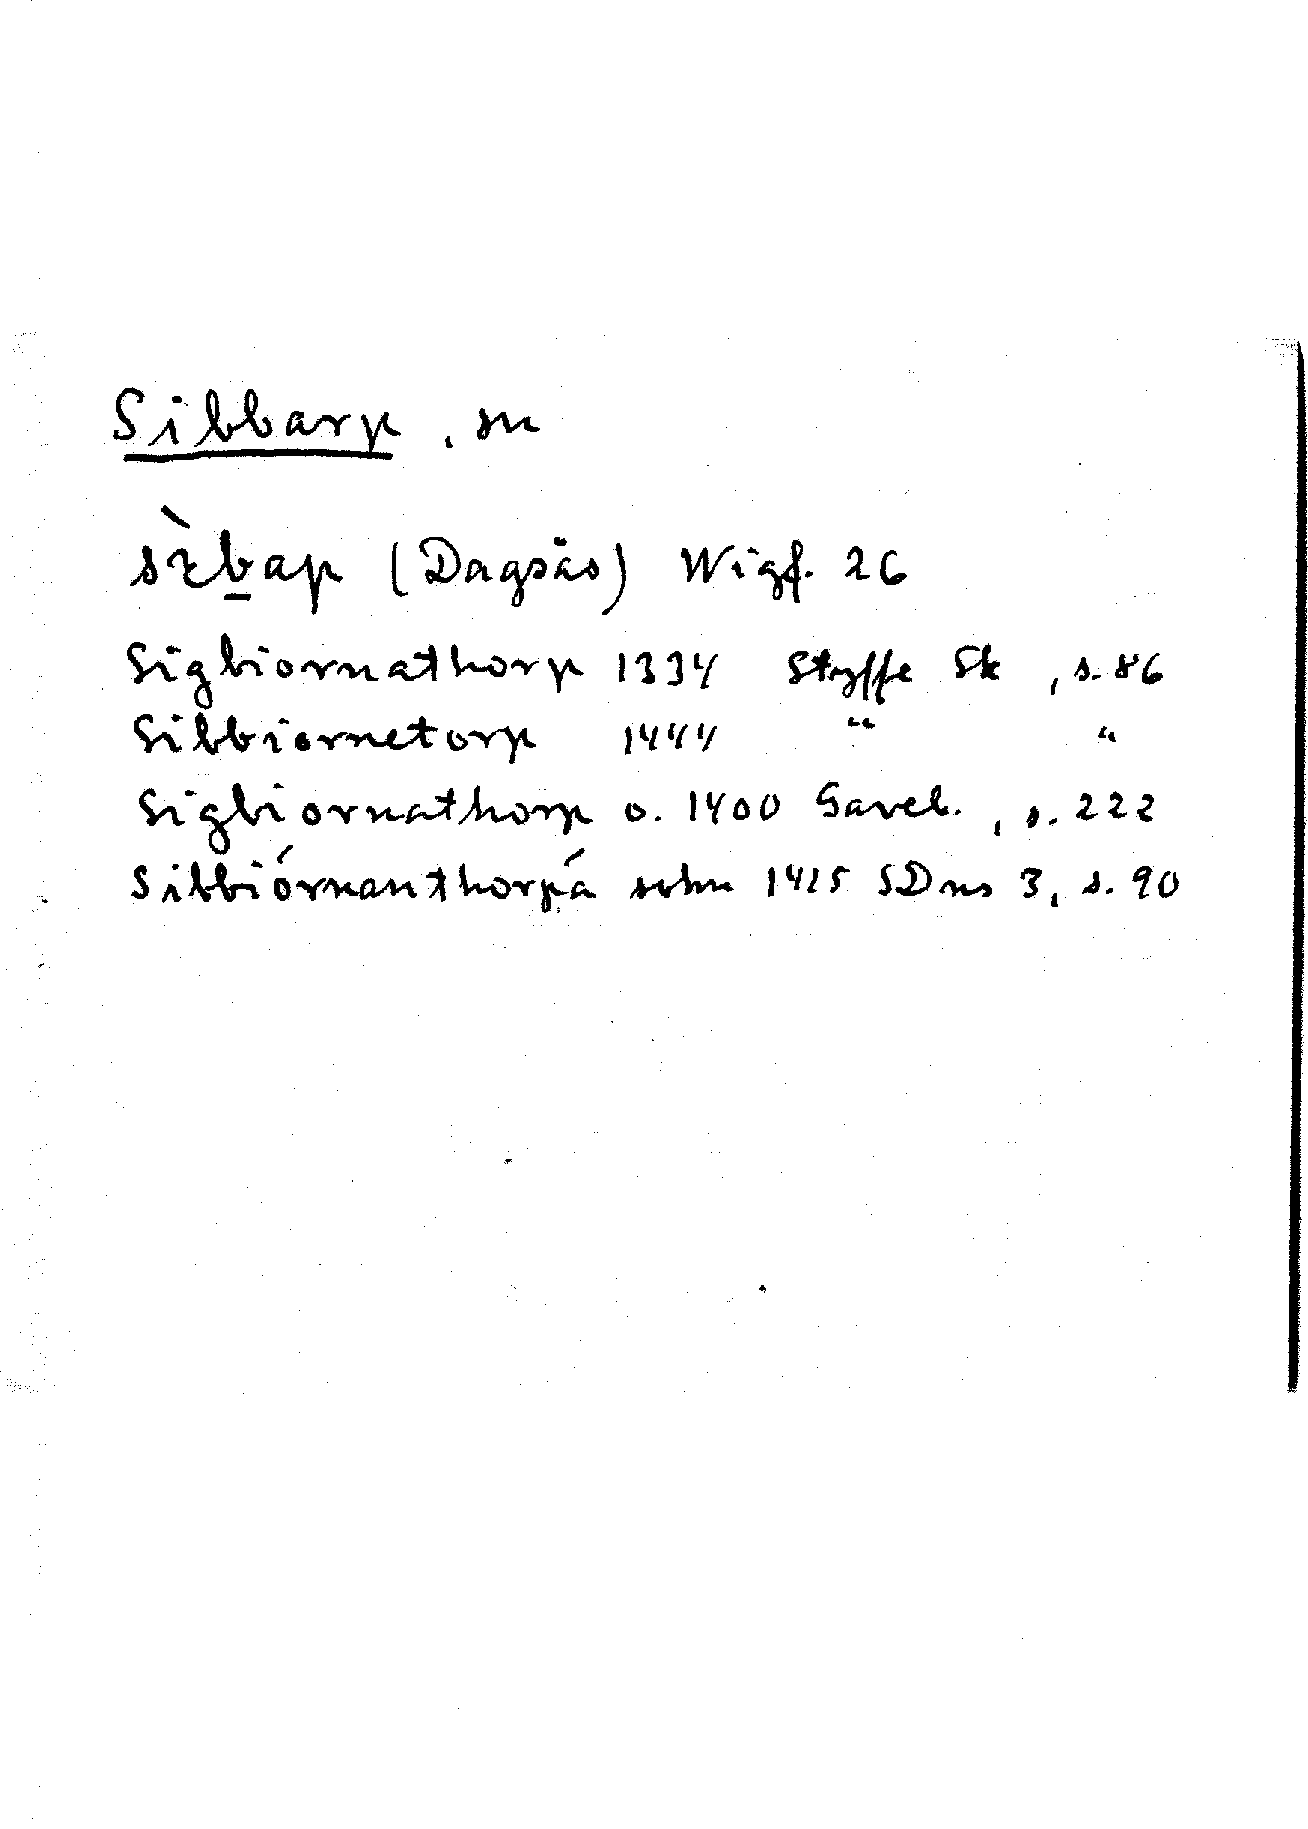 Sibbarp, sn
sìb̲ap (Dagsås) Wigf. 26
Sigbiornathorp 1334 Styffe Sk , s. 86
Sibbiornetorp 1444 " "
Sigbiornathorp o. 1400 Gavel. , s. 222
Sibbiórnanthorpá sokn 1415 SDns 3, s. 90